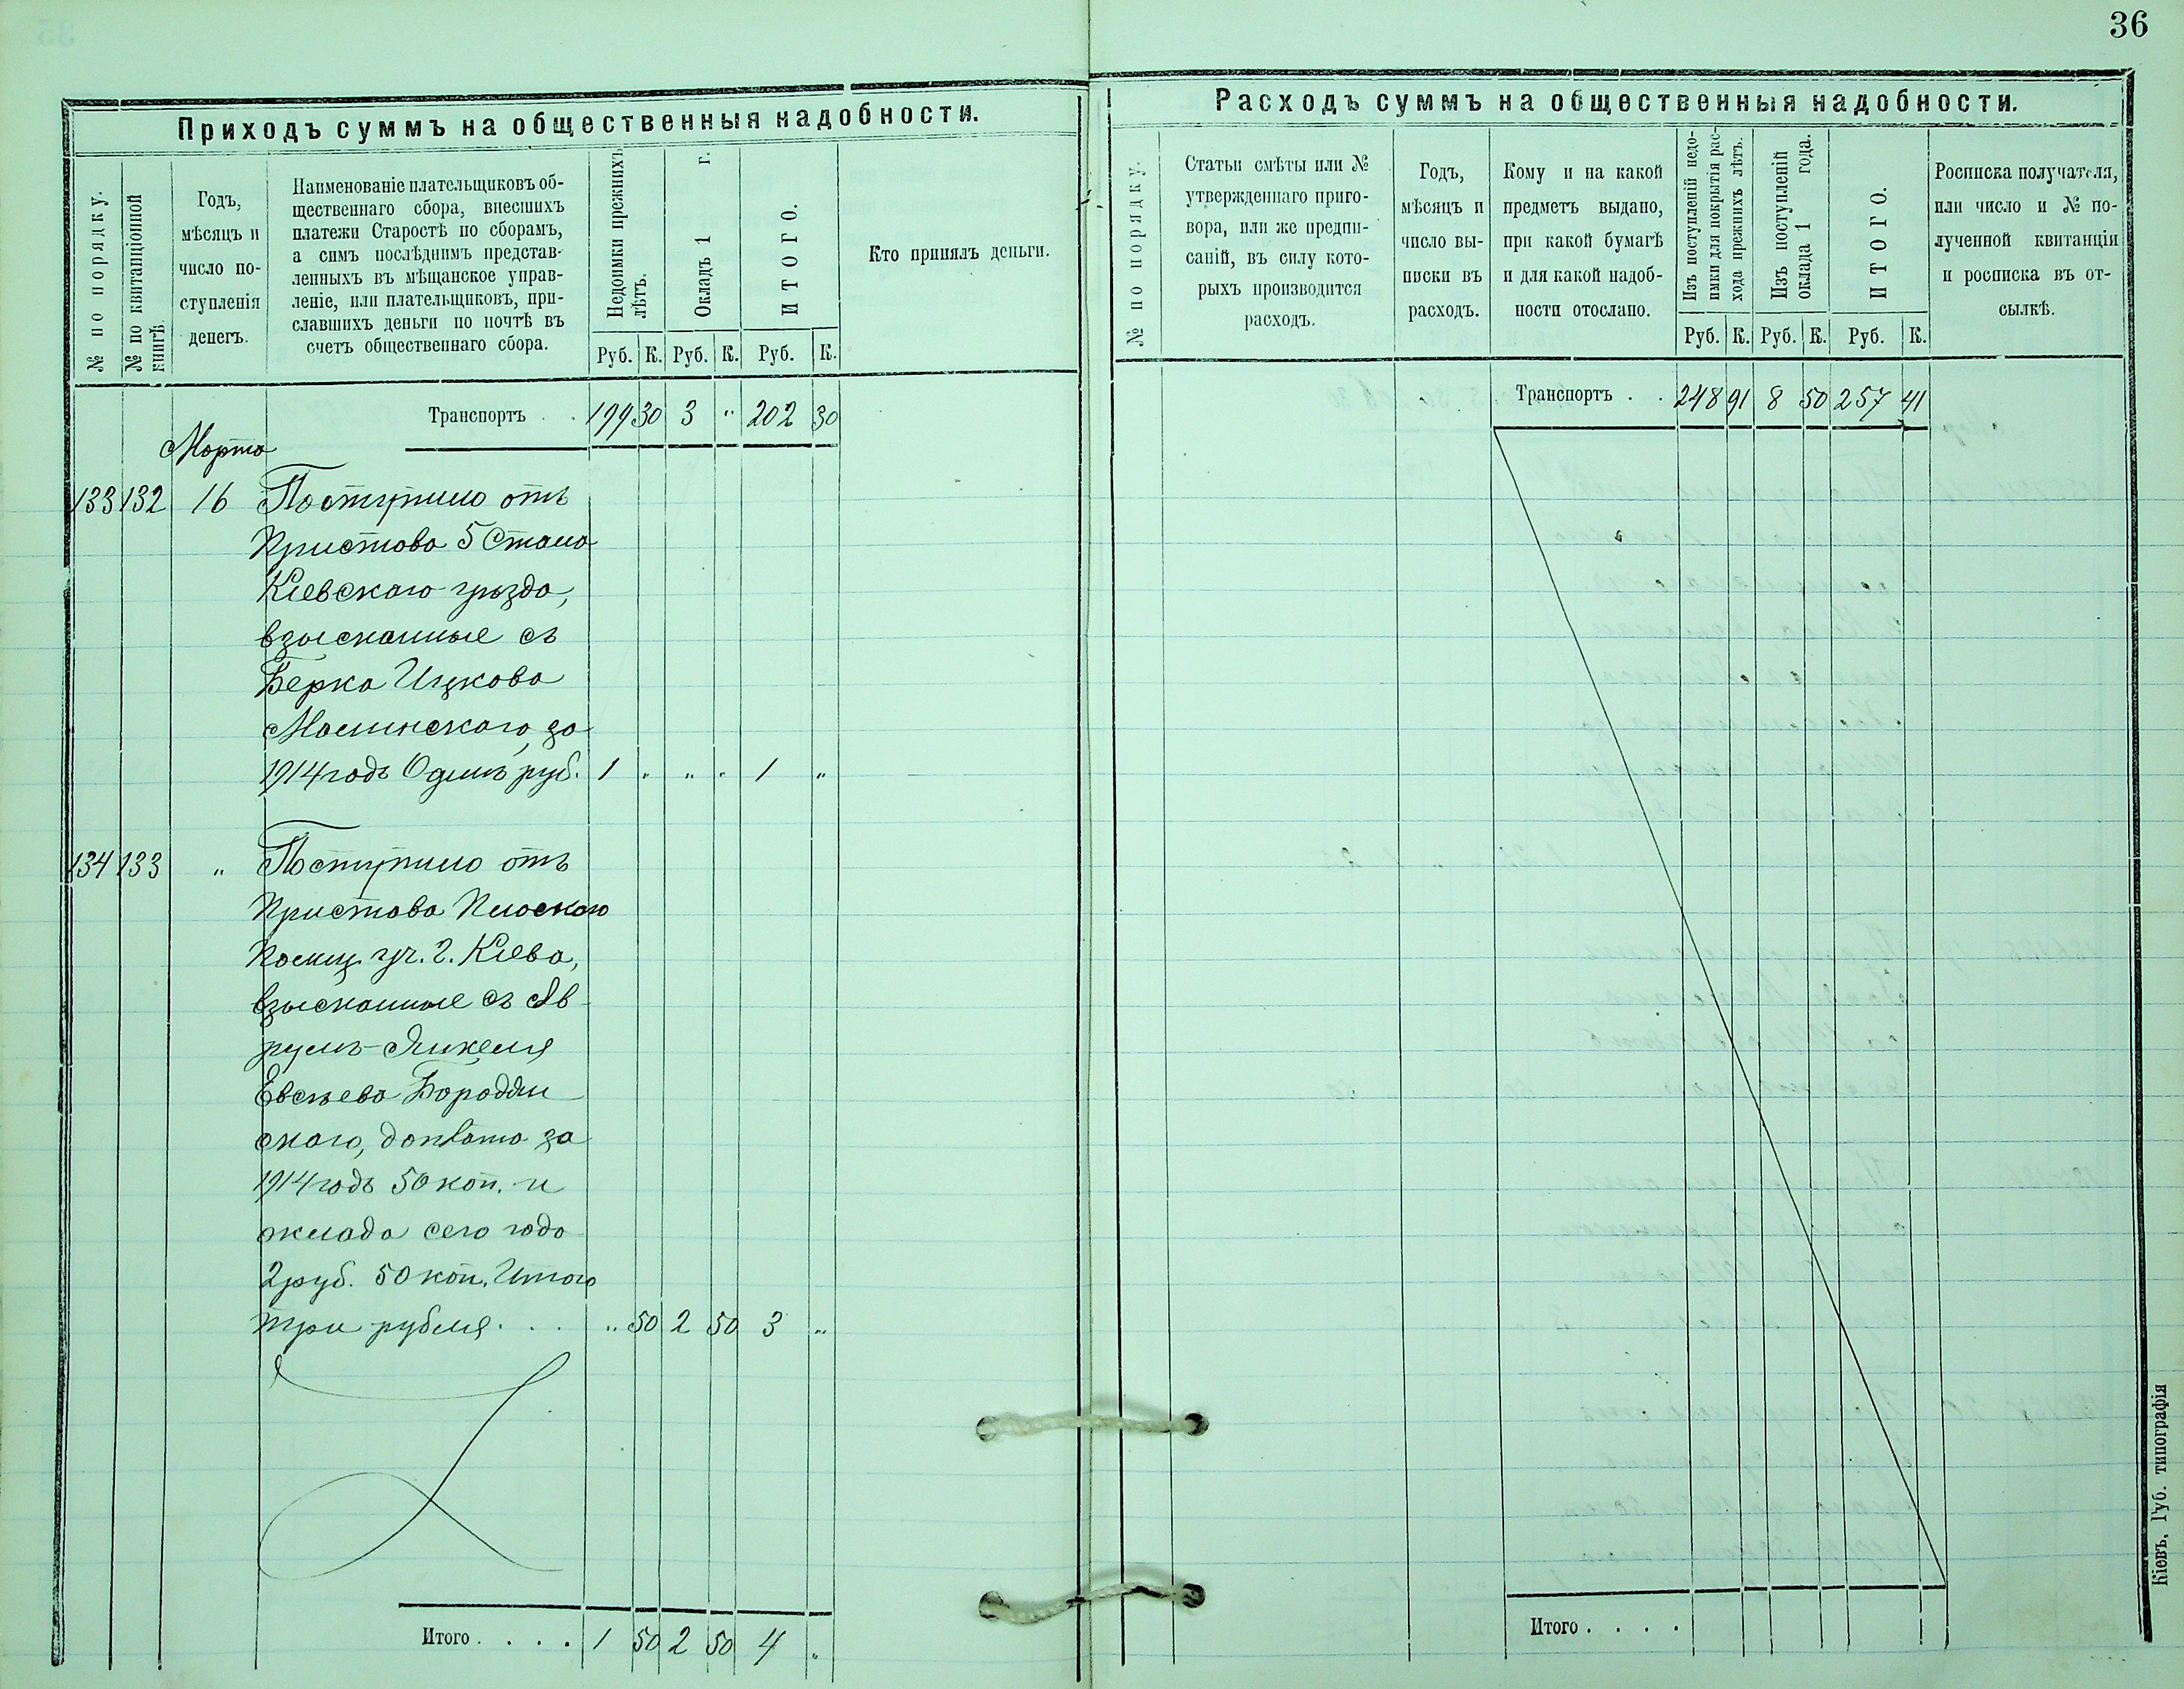 36
Приходъ суммъ на общественныя надобности.
№ по порядку.
№ по квитанціонной
книгѣ.
Годъ,
мѣсяцъ и
число по-
ступленія
денегъ.
Наименованіе плательщиковъ об-
щественнаго сбора, внесшихъ
платежи Старостѣ по сборамъ,
а симъ послѣднимъ представ-
ленныхъ въ мѣщанское управ-
леніе, или плательщиковъ, при-
славшихъ деньги по почтѣ въ
счетъ общественнаго сбора.
Недоимки прежнихъ
лѣтъ.
Окладъ 1 г.
ИТОГО.
Руб. К. Руб. К. Руб. К.
Кто принялъ деньги.
Транспортъ . . 199 30 3 " 202 30
Марта
133 132 16 Поступило отъ
Пристава 5 Стана
Кіевскаго уѣзда,
взысканные съ
Берка Ицкова
Малинскаго за
1914 годъ Одинъ руб. 1 " " " 1 "
134 133 " Поступило отъ
Пристава Плоскаго
Полиц. уч. г. Кіева,
взысканные съ Ав
румъ-Янкеля
Евсѣева Бородян
скаго, доплата за
1914 годъ 50 коп. и
оклада сего года
2 руб. 50 коп. Итого
три рубля . . . " 50 2 50 3 "
Итого . . . . 1 50 2 50 4 "
Расходъ суммъ на общественныя надобности.
№ по порядку.
Статьи смѣты или №
утвержденнаго приго-
вора, или же предпи-
саній, въ силу кото-
рыхъ производится
расходъ.
Годъ,
мѣсяцъ и
число вы-
писки въ
расходъ.
Кому и на какой
предметъ выдано,
при какой бумагѣ
и для какой надоб-
ности отослано.
Изъ поступленій недо-
имки для покрытія рас-
хода прежнихъ лѣтъ.
Изъ поступленій
оклада 1 года.
ИТОГО.
Руб. К. Руб. К. Руб. К.
Росписка получателя,
или число и № по-
лученной квитанціи
и росписка въ от-
сылкѣ.
Транспортъ . . 248 91 8 50 257 41
Итого . . . .
Кіевъ, Губ. типографія